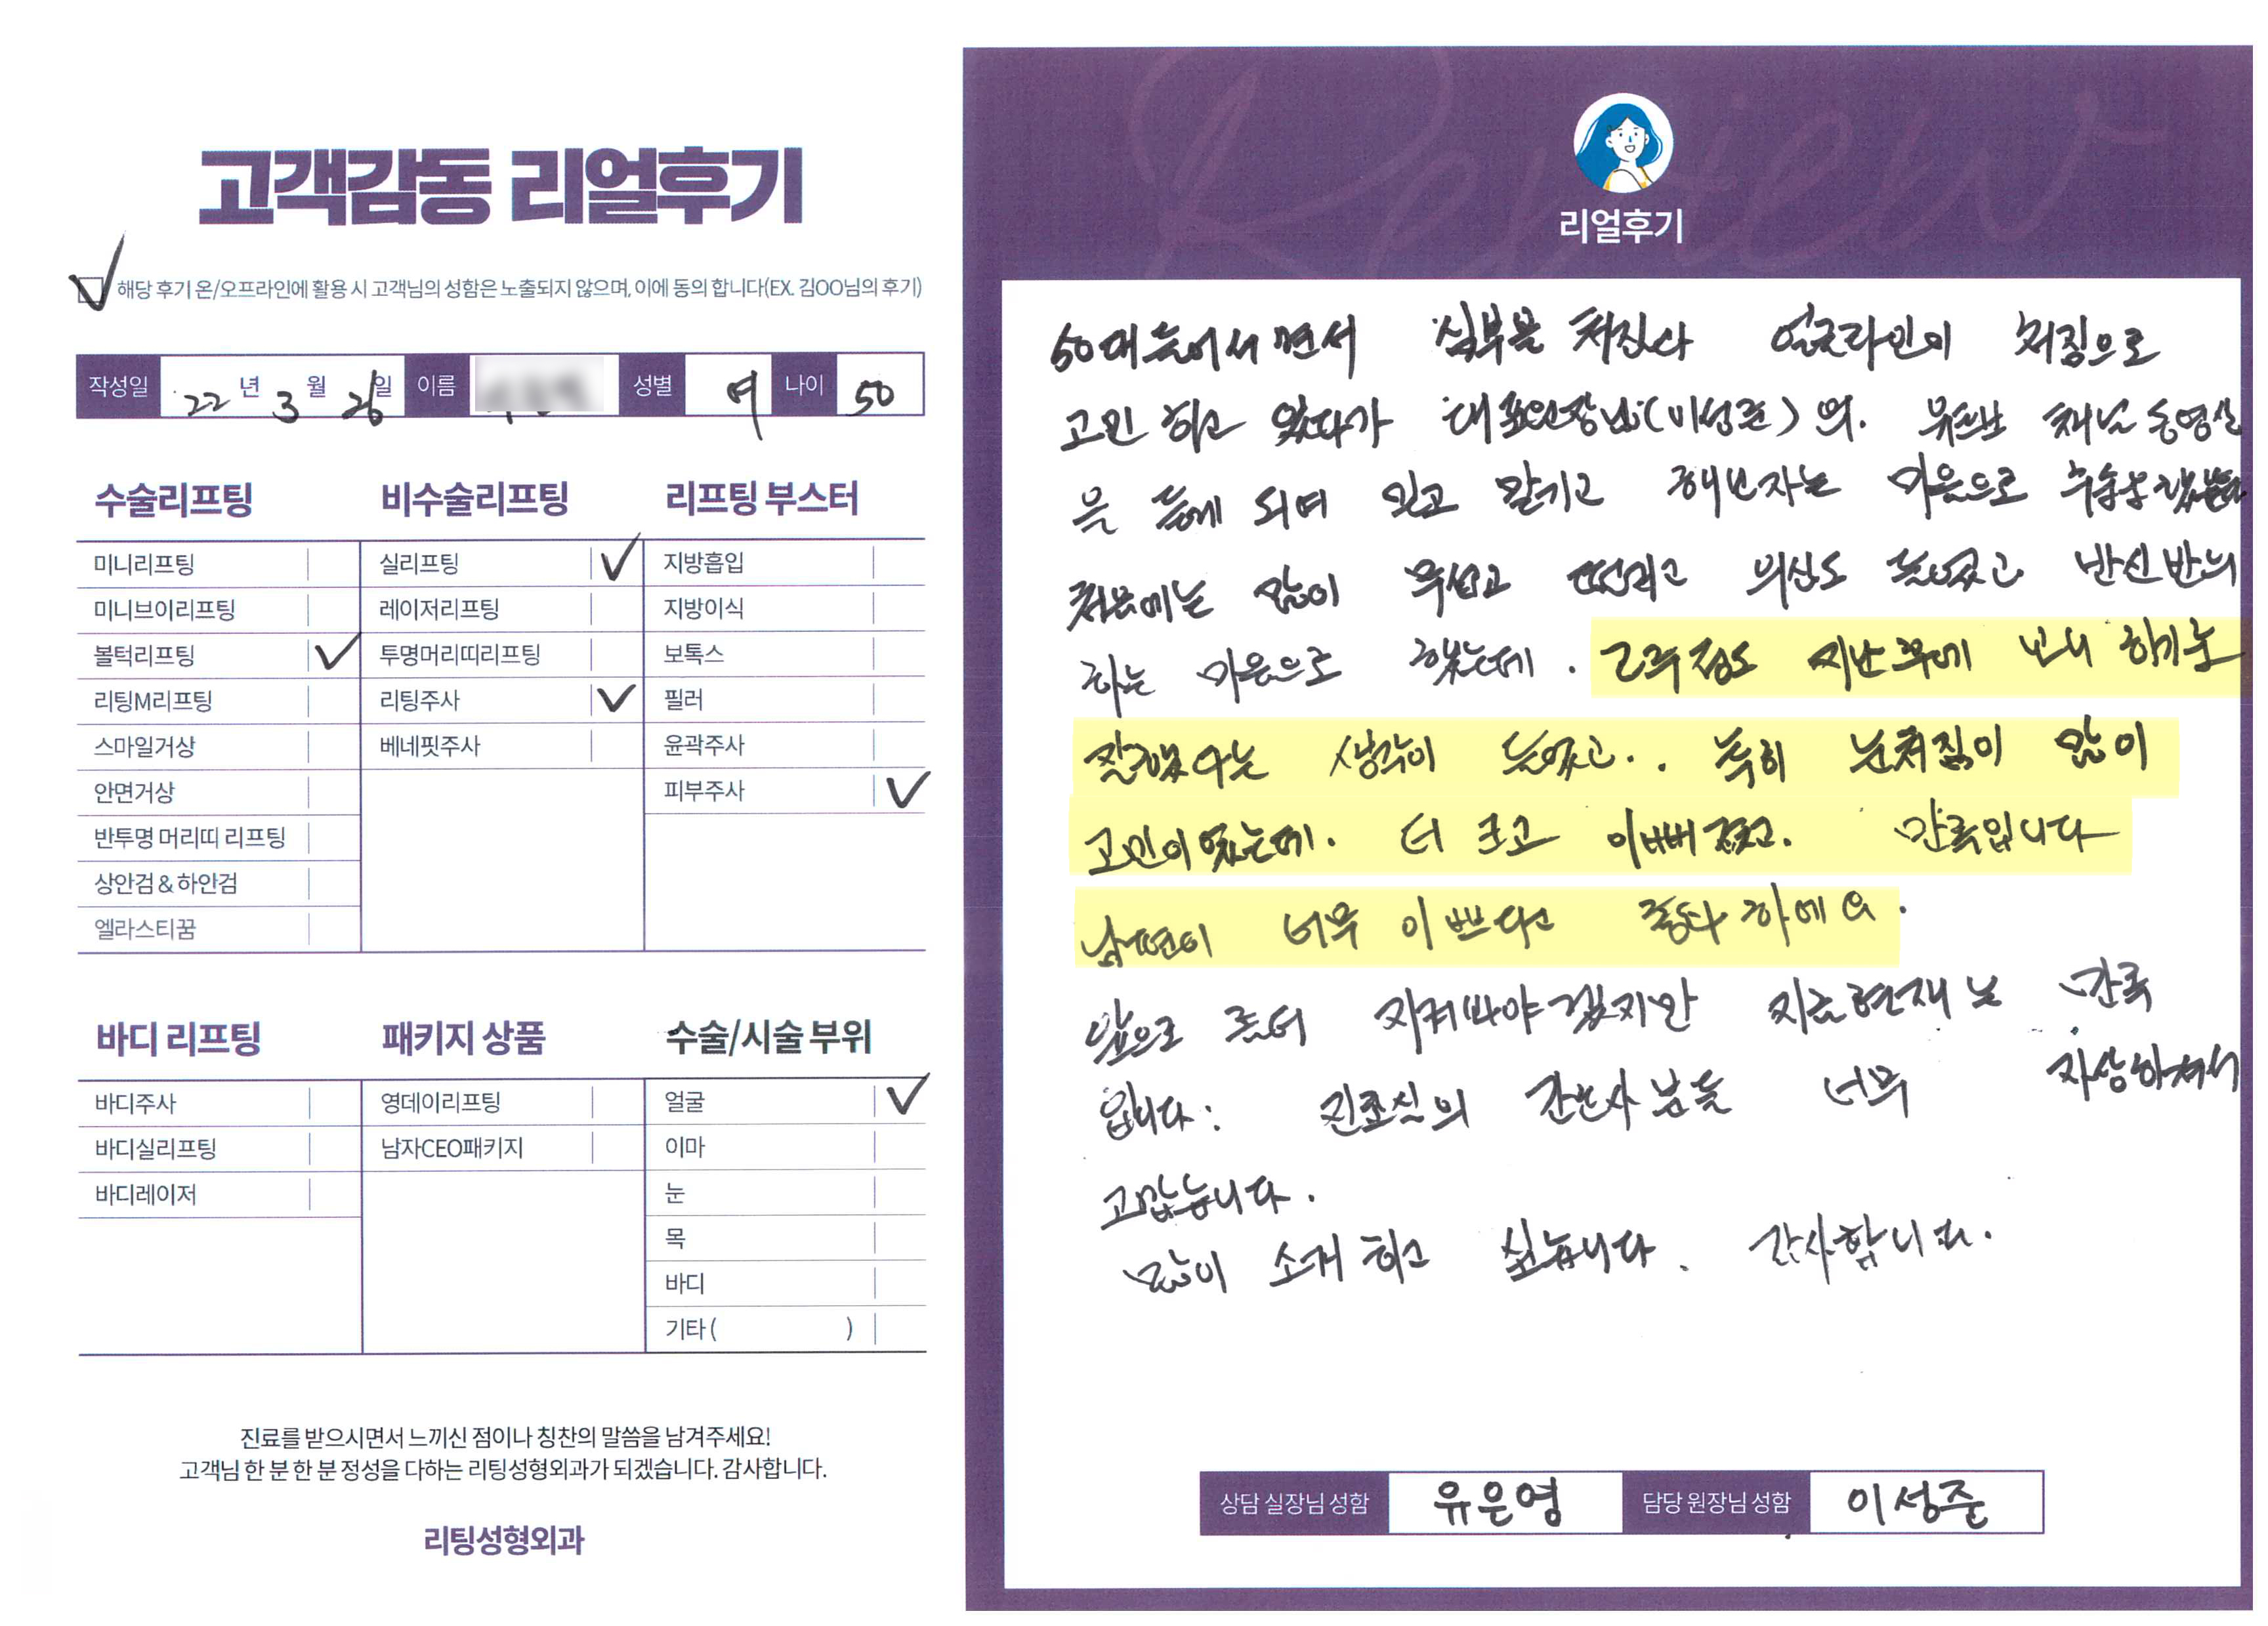 고객감동 리얼후기
해당 후기 온/오프라인에 활용 시 고객님의 성함은 노출되지 않으며, 이에 동의 합니다(EX. 김OO님의 후기)
작성일 22 년 3 월 26 일 이름 성별 여 나이 50
수술리프팅
미니리프팅
미니브이리프팅
볼턱리프팅 ✓
리팅M리프팅
스마일거상
안면거상
반투명 머리띠 리프팅
상안검 & 하안검
엘라스티꿈
비수술리프팅
실리프팅 ✓
레이저리프팅
투명머리띠리프팅
리팅주사 ✓
베네핏주사
리프팅 부스터
지방흡입
지방이식
보톡스
필러
윤곽주사
피부주사 ✓
바디 리프팅
바디주사
바디실리프팅
바디레이저
패키지 상품
영데이리프팅
남자CEO패키지
수술/시술 부위
얼굴 ✓
이마
눈
목
바디
기타 ( )
진료를 받으시면서 느끼신 점이나 칭찬의 말씀을 남겨주세요!
고객님 한 분 한 분 정성을 다하는 리팅성형외과가 되겠습니다. 감사합니다.
리팅성형외과
Review
리얼후기
50대 들어서면서 얼굴라인이 처짐으로
고민 하고 있다가 대표원장님(이성준)의. 유튜브 채널 동영상
을 듣게 되며 믿고 맡기고 해보자는 마음으로
처음에는 많이 무섭고 떨리고 의심도 들었고 반신반의
하는 마음으로 했는데. 2주정도 지난후에 보니 하기는
잘했다는 생각이 들었고.. 특히 눈처짐이 많이
고민이었는데. 더 크고 이뻐졌고. 만족입니다
남편이 너무 이쁘다고 좋다 하에요.
앞으로 좀더 지켜봐야겠지만 지금현재는 만족
입니다: 진료실의 간호사 분들 너무 자상하셔서
고맙습니다.
많이 소개 하고 싶습니다. 감사합니다.
상담 실장님 성함 유은영 담당 원장님 성함 이성준